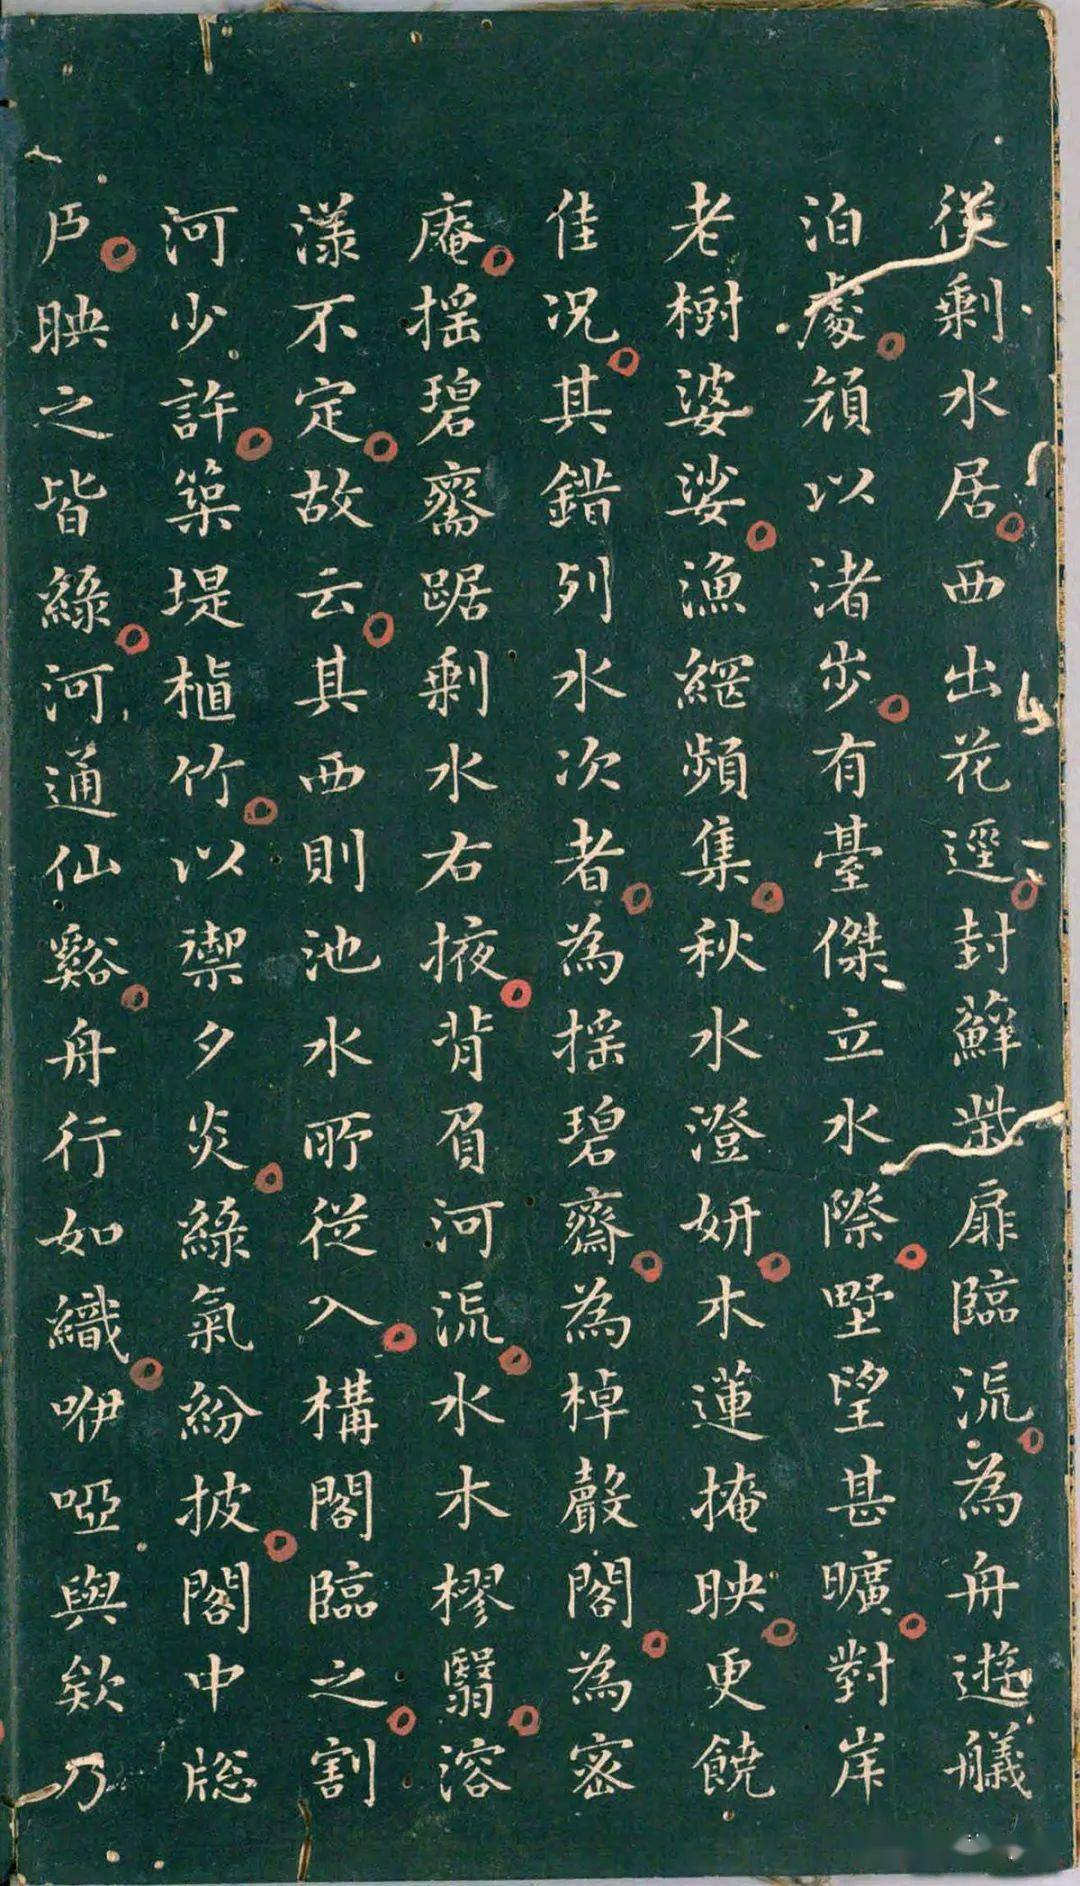 從剩水居西出花逕封蘚柴扉臨流為舟遊艤
泊處頫以渚步有臺傑立水際墅望甚曠對岸
老樹婆娑漁網頻集秋水澄妍木蓮掩映更饒
佳況其錯列水次者為搖碧齋為棹聲閣為密
庵搖碧齋踞剩水右掖背眉河流水木樛翳溶
漾不定故云其西則池水所從入構閣臨之割
河少許築堤植竹以禦夕炎綠氣紛披閣中牎
戶映之皆綠河通仙谿舟行如織咿啞與欸乃